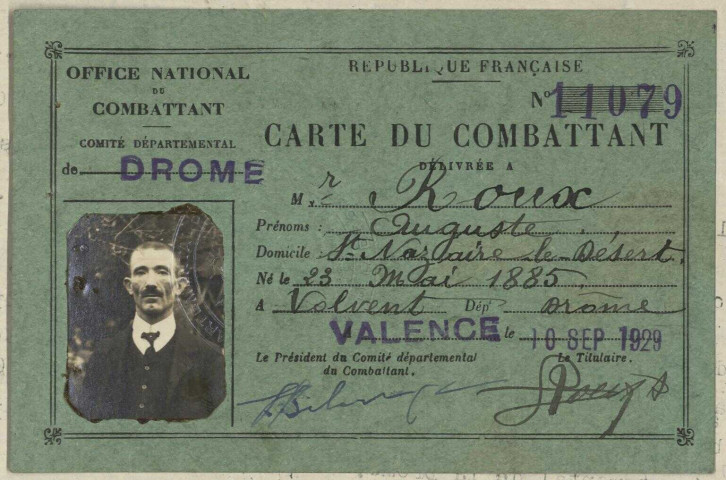 OFFICE NATIONAL
DU
COMBATTANT
COMITÉ DÉPARTEMENTAL
de DROME
RÉPUBLIQUE FRANÇAISE
N° 11079
CARTE DU COMBATTANT
DÉLIVRÉE A
M r Roux
Prénoms : Auguste
Domicile : St Nazaire le Désert.
Né le 23 Mai 1885.
A Volvent Dépt Drome
VALENCE le 10 SEP 1929
Le Président du Comité départemental
du Combattant.
Le Titulaire.
Roux A